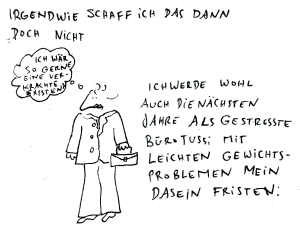 IRGENDWIE SCHAFF ICH DAS DANN
DOCH NICHT
ICH WÄR
SO GERNE
EINE VER-
KRACHTE
EXISTENZ
ICH WERDE WOHL
AUCH DIE NÄCHSTEN
JAHRE ALS GESTRESSTE
BÜROTUSSI MIT
LEICHTEN GEWICHTS-
PROBLEMEN MEIN
DASEIN FRISTEN.